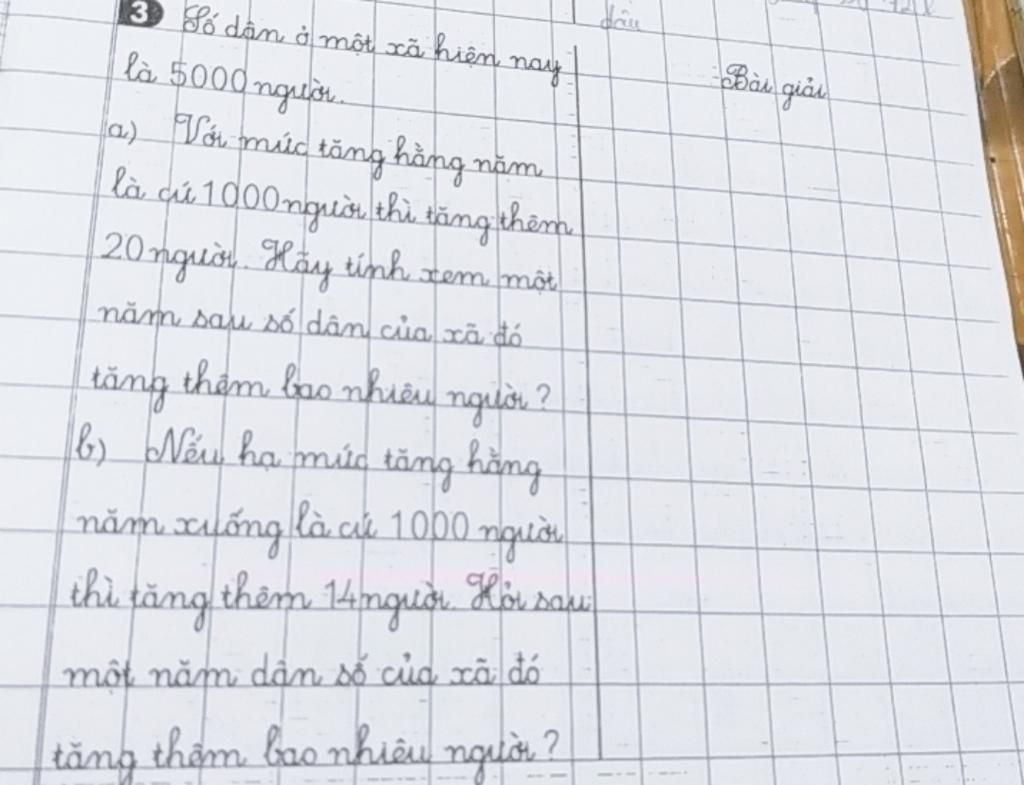 3 Số dân ở một xã hiện nay
là 5000 người.
a) Với mức tăng hàng năm
là cứ 1000 người thì tăng thêm
20 người. Hãy tính xem một
năm sau số dân của xã đó
tăng thêm bao nhiêu người?
b) Nếu hạ mức tăng hàng
năm xuống là cứ 1000 người
thì tăng thêm 14 người. Hỏi sau
một năm dân số của xã đó
tăng thêm bao nhiêu người?
Bài giải